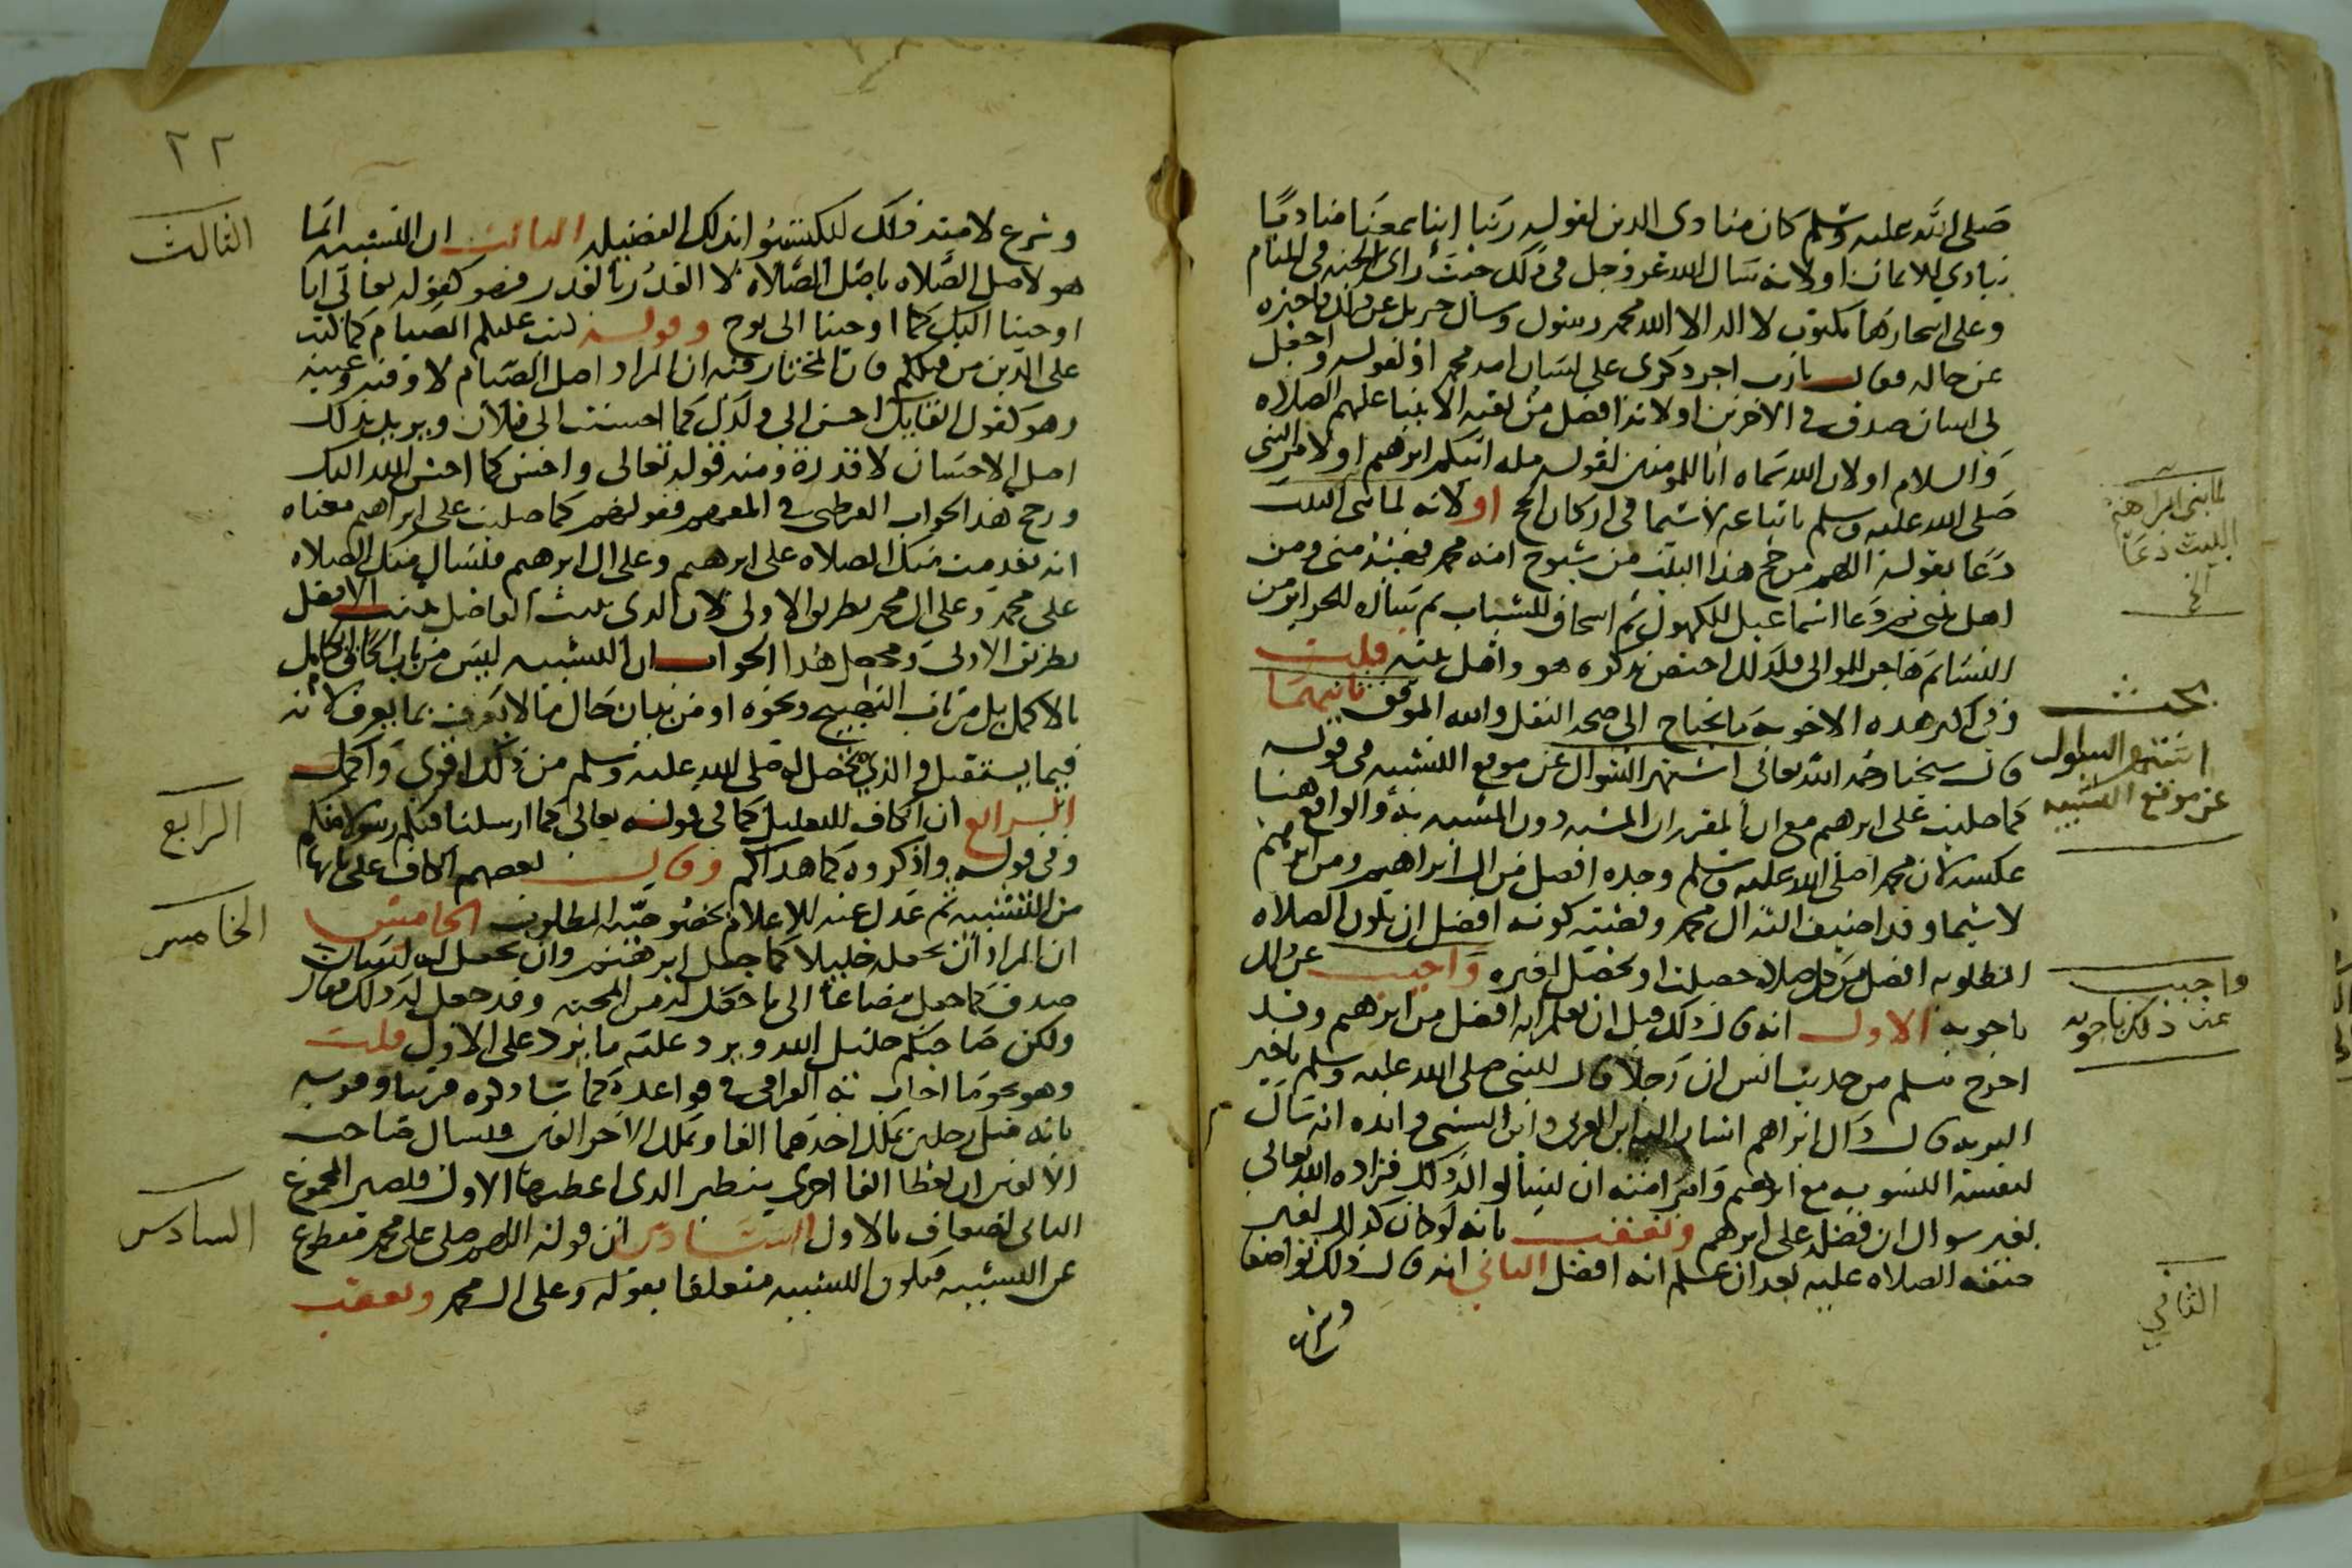 صلى الله عليه وسلم كان منادي الدين لقوله ربنا اننا سمعنا مناديا
ينادي للايمان او لانه سال الله عز وجل في ذلك حيث راى الجنه في المنام
وعلى اشجارها مكتوب لا اله الا الله محمد رسول وسال جبريل عن ذلك فاخبره
عن حاله فقال يارب اجر ذكري على لسان امه محمد او لقوله واجعل
لي لسان صدق في الاخرين او لانه افضل من بقيه الانبيا عليهم الصلاه
والسلام او لان الله سماه ابا للمومنين لقوله مله ابيكم ابرهيم او لامر النبي
صلى الله عليه وسلم باتباعه لاسيما في اركان الحج او لانه لما بنى البيت
دعا بقوله اللهم من حج هذا البيت من شيوخ امه محمد فهبه مني ومن
اهل بيتي ثم دعا اسماعيل للكهول ثم اسحاق للشباب ثم ساره للحراير من
النسا ثم هاجر للموالي فلذلك اختص بذكره هو واهل بيته قلت
وفي اكثر هذه الاجوبه ما يحتاج الى صحه النقل والله الموفق ثانيهما
قال شيخنا رحمه الله تعالى اشتهر السوال عن موقع التشبيه في قوله
كما صليت على ابرهيم مع ان المقرر ان المشبه دون المشبه به والواقع هنا
عكسه لان محمدا صلى الله عليه وسلم وحده افضل من ال ابراهيم ومن ابرهيم
لاسيما وقد اضيف اليه ال محمد وقضيه كونه افضل ان يكون الصلاه
المطلوبه افضل من كل صلاه حصلت او تحصل لغيره واجيب عن ذلك
باجوبه الاول انه قال ذلك قبل ان يعلم انه افضل من ابرهيم وقد
اخرج مسلم من حديث انس ان رجلا قال للنبي صلى الله عليه وسلم ياخير
البريه قال ذاك ابراهيم اشار اليه ابن العربي وايده انه سال
لنفسه التسويه مع ابرهيم وامر امته ان يسالوا له ذلك فزاده الله تعالى
بغير سوال ان فضله على ابرهيم وتعقب بانه لو كان كذلك لغير
صفه الصلاه عليه بعد ان علم انه افضل الثاني انه قال ذلك تواضعا
وشرع
لما بنى ابراهيم
البيت دعا
الخ
بحث
اشتهر السوال
عن موقع التشبيه
واجيب
عن ذلك باجوبه
الثاني
٢٢
وشرع لامته ذلك ليكتسبوا بذلك الفضيله الثالث ان التشبيه انما
هو لاصل الصلاه باصل الصلاه لا القدر بالقدر فهو كقوله تعالى انا
اوحينا اليك كما اوحينا الى نوح وقوله كتب عليكم الصيام كما كتب
على الذين من قبلكم فان المختار فيه ان المراد اصل الصيام لا وقته وعينه
وهو كقول القايل احسن الى ولدك كما احسنت الى فلان ويريد بذلك
اصل الاحسان لا قدره ومنه قوله تعالى واحسن كما احسن الله اليك
ورجح هذا الجواب القرطبي في المفهم فقولهم كما صليت على ابراهيم معناه
انه تقدمت منك الصلاه على ابرهيم وعلى ال ابرهيم فنسال منك الصلاه
على محمد وعلى ال محمد بطريق الاولى لان الذي يثبت للفاضل يثبت للافضل
بطريق الاولى ومحصل هذا الجواب ان التشبيه ليس من باب الحاق الكامل
بالاكمل بل من باب التهييج ونحوه او من بيان حال ما لا يعرف بما يعرف لانه
فيما يستقبل والذي يحصل له صلى الله عليه وسلم من ذلك اقوى واكمل
الرابع ان الكاف للتعليل كما في قوله تعالى كما ارسلنا فيكم رسولا منكم
وفي قوله واذكروه كما هداكم وقال بعضهم الكاف على بابها
من التشبيه ثم عدل عنه للاعلام بخصوصيه المطلوب الخامس
ان المراد ان يجعله خليلا كما جعل ابرهيم وان يجعل له لسان
صدق كما جعل مضافا الى ما حصل له من المحبه وقد حصل له ذلك فقال
ولكن صاحبكم خليل الله ويرد عليه ما يرد على الاول قلت
وهو نحو ما اجاب به القرافي في قواعده كما ساذكره قريبا وقربه
بانه مثل رجلين يملك احدهما الفا ويملك الاخر الفين فيسال صاحب
الالفين ان يعطا الفا اخرى ينظير الذي اعطيها الاول فيصير المجموع
للثاني اضعاف ما للاول السادس ان قوله اللهم صل على محمد مقطوع
عن التشبيه فيكون التشبيه متعلقا بقوله وعلى ال محمد وتعقب
الثالث
الرابع
الخامس
السادس